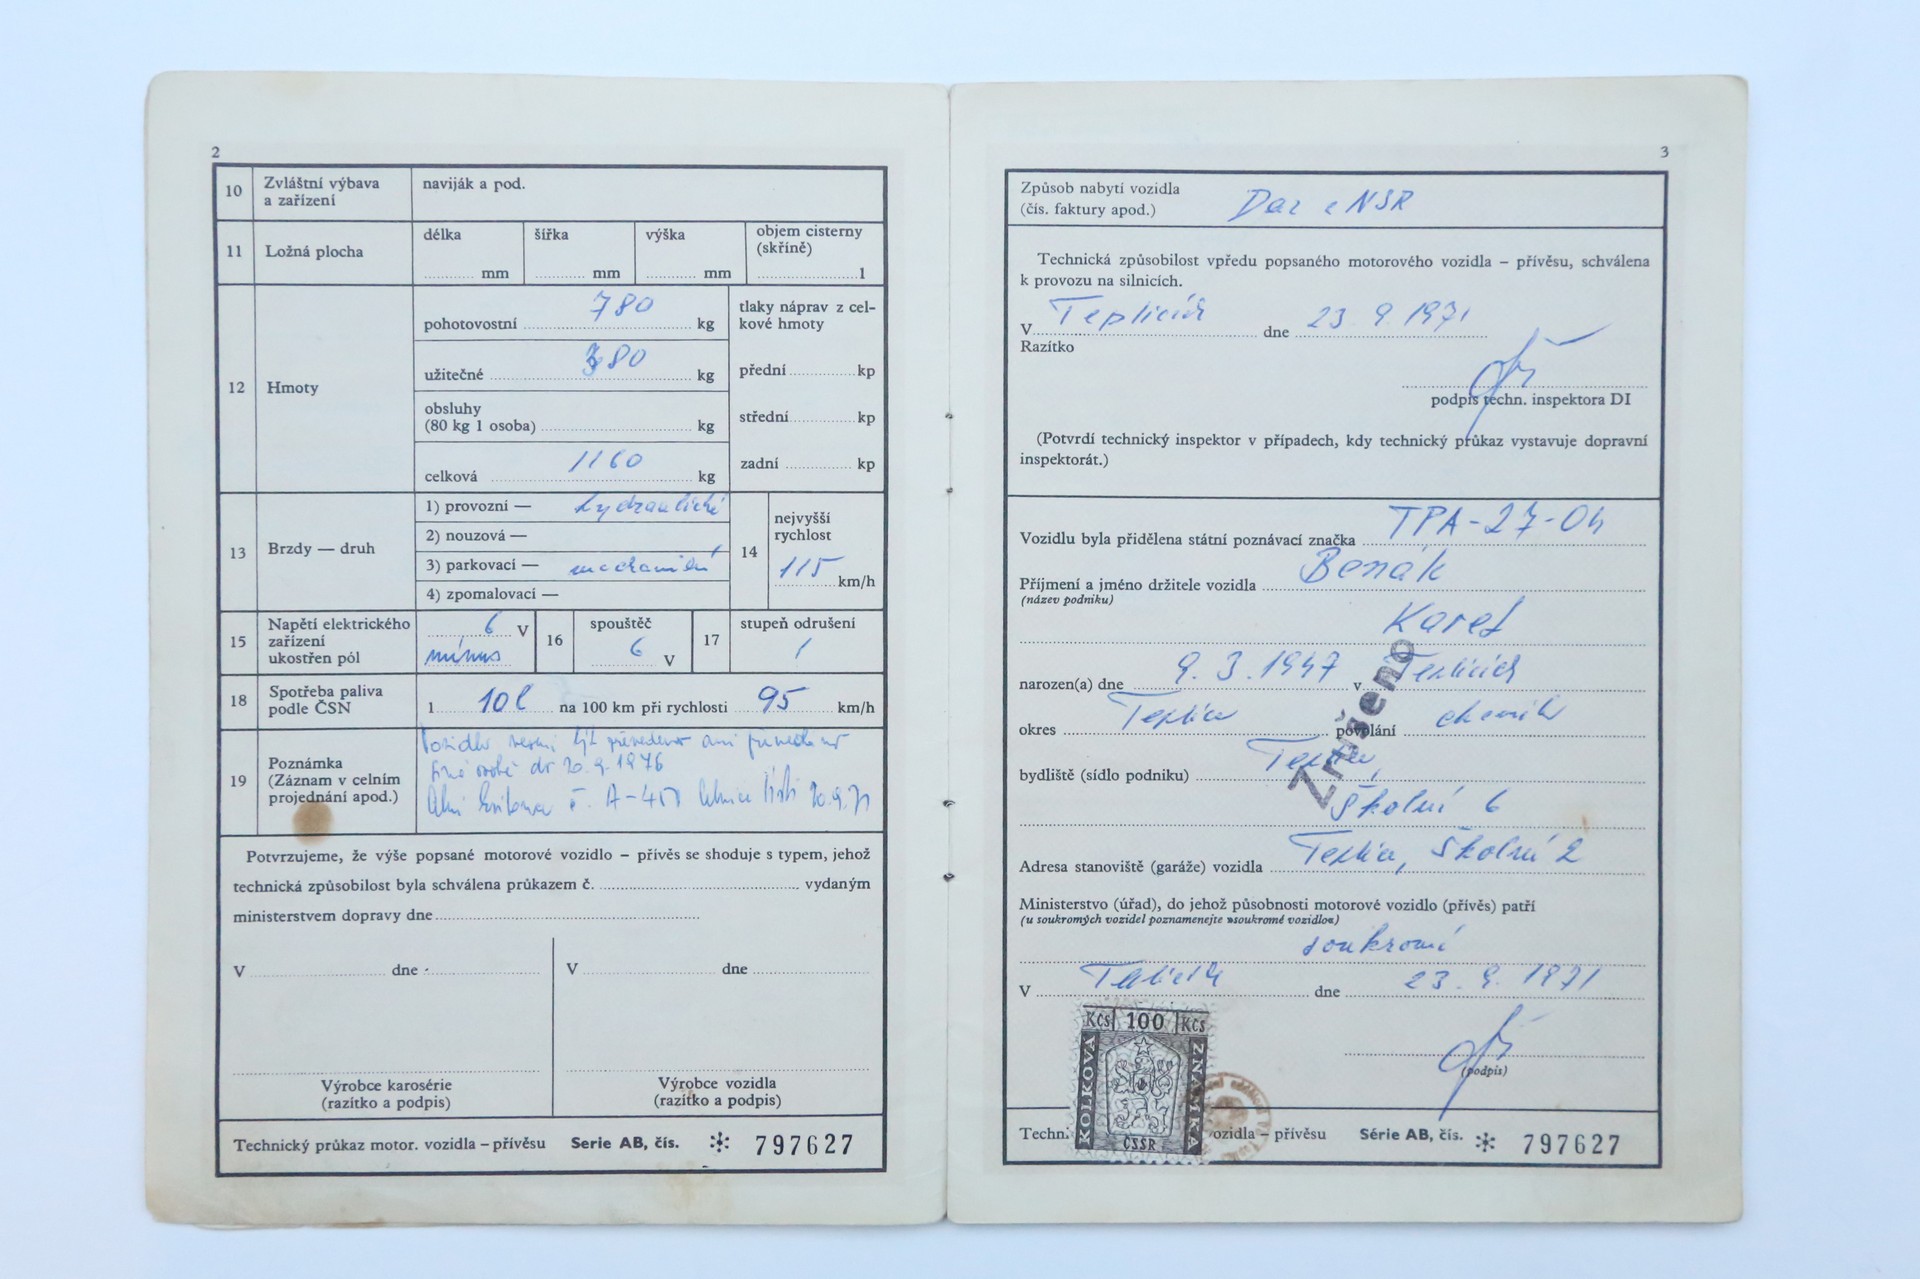 2
10 Zvláštní výbava a zařízení naviják a pod.
11 Ložná plocha
délka ... mm
šířka ... mm
výška ... mm
objem cisterny (skříně) ... l
12 Hmoty
pohotovostní 780 kg
užitečné 380 kg
obsluhy
(80 kg 1 osoba) ... kg
celková 1160 kg
tlaky náprav z cel-
kové hmoty
přední ... kp
střední ... kp
zadní ... kp
13 Brzdy — druh
1) provozní — hydraulické
2) nouzová —
3) parkovací — mechanické
4) zpomalovací —
14 nejvyšší
rychlost
115 km/h
15 Napětí elektrického
zařízení
ukostřen pól
6 V
mínus
16 spouštěč
6 V
17 stupeň odrušení
1
18 Spotřeba paliva
podle ČSN
l 10l na 100 km při rychlosti 95 km/h
19 Poznámka
(Záznam v celním
projednání apod.)
Vozidlo nesmí být převedeno ani
do 20.9.1976
č. A-451 20.9.71
Potvrzujeme, že výše popsané motorové vozidlo – přívěs se shoduje s typem, jehož
technická způsobilost byla schválena průkazem č. ... vydaným
ministerstvem dopravy dne ...
V ... dne ...
V ... dne ...
Výrobce karosérie
(razítko a podpis)
Výrobce vozidla
(razítko a podpis)
Technický průkaz motor. vozidla – přívěsu Serie AB, čís. 797627
3
Způsob nabytí vozidla
(čís. faktury apod.)
Dar z NSR
Technická způsobilost vpředu popsaného motorového vozidla – přívěsu, schválena
k provozu na silnicích.
V Teplicích dne 23.9.1971
Razítko
podpis techn. inspektora DI
(Potvrdí technický inspektor v případech, kdy technický průkaz vystavuje dopravní
inspektorát.)
Vozidlu byla přidělena státní poznávací značka TPA-27-04
Příjmení a jméno držitele vozidla Benák
(název podniku)
Karel
narozen(a) dne 9.3.1947 v Teplicích
okres Teplice povolání chemik
Zrušeno
bydliště (sídlo podniku) Teplice,
Školní 6
Adresa stanoviště (garáže) vozidla Teplice, Školní 2
Ministerstvo (úřad), do jehož působnosti motorové vozidlo (přívěs) patří
(u soukromých vozidel poznamenejte »soukromé vozidlo«)
soukromé
V Teplicích dne 23.9.1971
(podpis)
Kčs 100 Kčs
KOLKOVÁ
ZNÁMKA
ČSSR
Techn. ozidla – přívěsu Série AB, čís. 797627